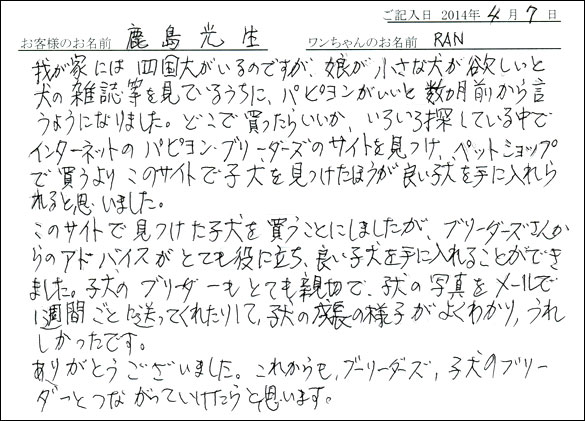 ご記入日 2014年 4月 7日
お客様のお名前 鹿島 光生 ワンちゃんのお名前 RAN
我が家には四国犬がいるのですが、娘が小さな犬が欲しいと
犬の雑誌等を見ているうちに、パピヨンがいいと数カ月前から言
うようになりました。どこで買ったらいいか、いろいろ探している中で
インターネットのパピヨン・ブリーダーズのサイトを見つけ、ペットショップ
で買うよりこのサイトで子犬を見つけたほうが良い子犬を手に入れら
れると思いました。
このサイトで見つけた子犬を買うことにしましたが、ブリーダーズさんか
らのアドバイスがとても役に立ち、良い子犬を手に入れることができ
ました。子犬のブリーダーもとても親切で、子犬の写真をメールで
1週間ごとに送ってくれたりして、子犬の成長の様子がよくわかり、うれ
しかったです。
ありがとうございました。これからも、ブーリーダーズ、子犬のブリー
ダーとつながっていけたらと思います。